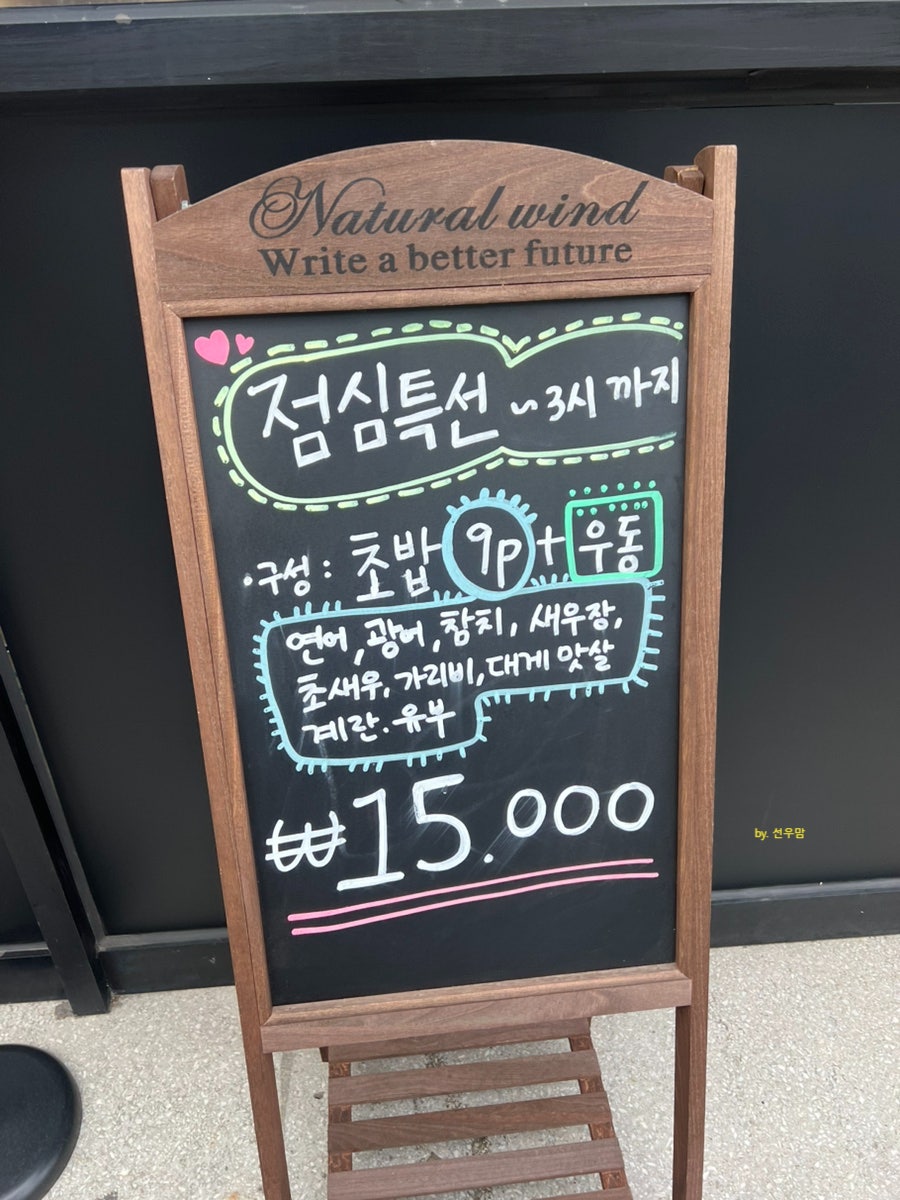 Natural wind
Write a better future
점심특선 ~3시 까지
·구성: 초밥 9p + 우동
연어, 광어, 참치, 새우장,
초새우, 가리비, 대게 맛살
계란. 유부
₩15.000
by. 선우맘